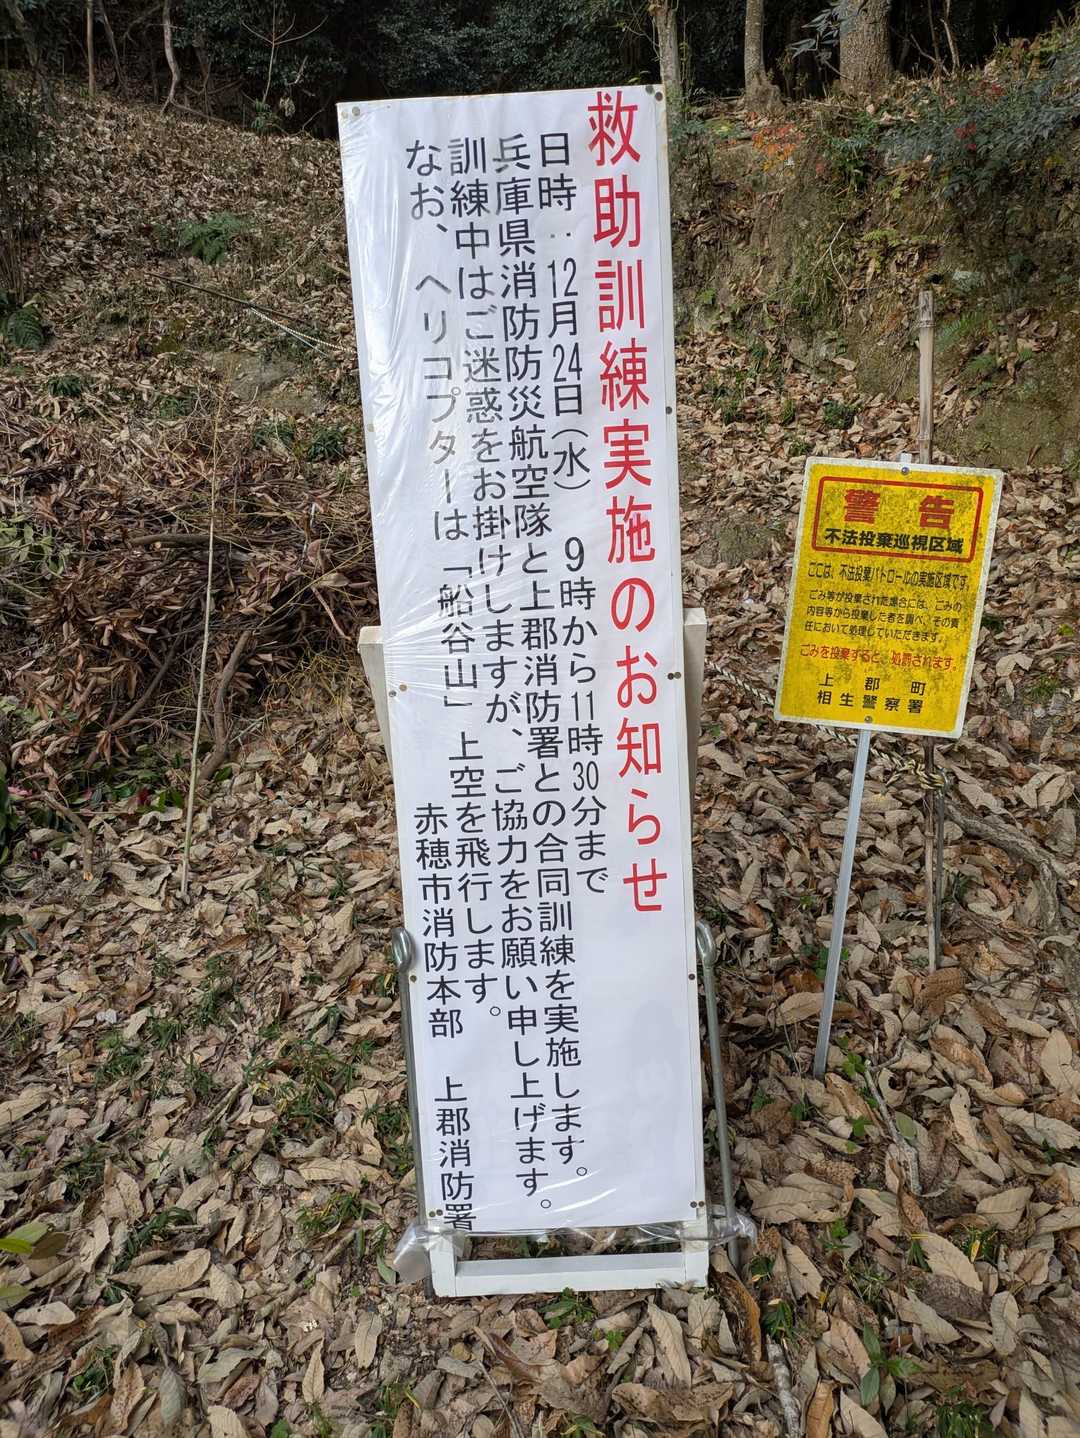 救助訓練実施のお知らせ
日時：12月24日（水） 9時から11時30分まで
兵庫県消防防災航空隊と上郡消防署との合同訓練を実施します。
訓練中はご迷惑をお掛けしますが、ご協力をお願い申し上げます。
なお、ヘリコプターは「船谷山」上空を飛行します。
赤穂市消防本部 上郡消防署
警告
不法投棄巡視区域
ここは、不法投棄パトロールの実施区域です。
ごみ等が投棄された場合には、ごみの
内容等から投棄した者を調べ、その責
任において処理していただきます。
ごみを投棄すると、処罰されます。
上郡町
相生警察署